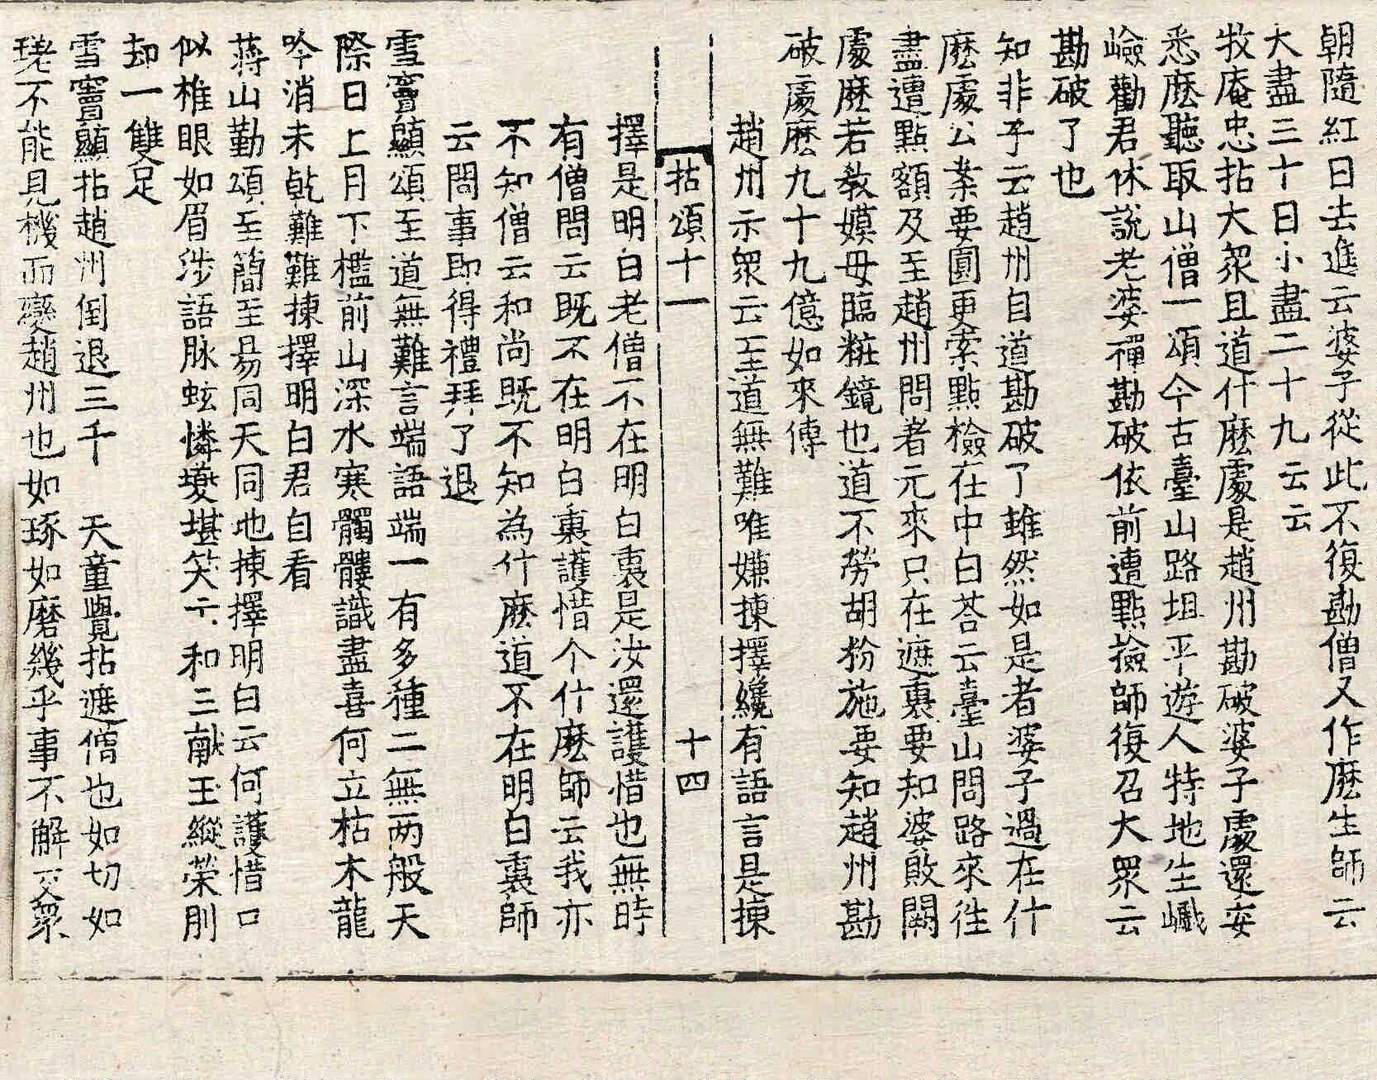 朝隨紅日去進云婆子從此不復勘僧又作麽生師云
大盡三十日小盡二十九云云
牧庵忠拈大衆且道什麽處是趙州勘破婆子處還委
悉麽聽取山僧一頌今古臺山路坦平遊人特地生巇
嶮勸君休說老婆禪勘破依前遭點撿師復召大衆云
勘破了也
知非子云趙州自道勘破了雖然如是者婆子過在什
麽處公案要圓更索點檢在中白荅云臺山問路來徃
盡遭點額及至趙州問者元來只在遮裏要知婆敗闕
處麽若敎嫫母臨粧鏡也道不勞胡粉施要知趙州勘
破處麽九十九億如來傳
趙州示衆云至道無難唯嫌揀擇纔有語言是揀
拈頌十一　十四
擇是明白老僧不在明白裏是汝還護惜也無時
有僧問云旣不在明白裏護惜个什麽師云我亦
不知僧云和尚旣不知為什麽道不在明白裏師
云問事即得禮拜了退
雪竇顯頌至道無難言端語端一有多種二無兩般天
際日上月下檻前山深水寒髑髏識盡喜何立枯木龍
吟消未乾難難揀擇明白君自看
蔣山勤頌至簡至易同天同地揀擇明白云何護惜口
似椎眼如眉涉語脉蚿憐夔堪笑卞和三献玉縱榮刖
却一雙足
雪竇顯拈趙州倒退三千　天童覺拈遮僧也如切如
瑳不能見機而變趙州也如琢如磨幾乎事不解交衆